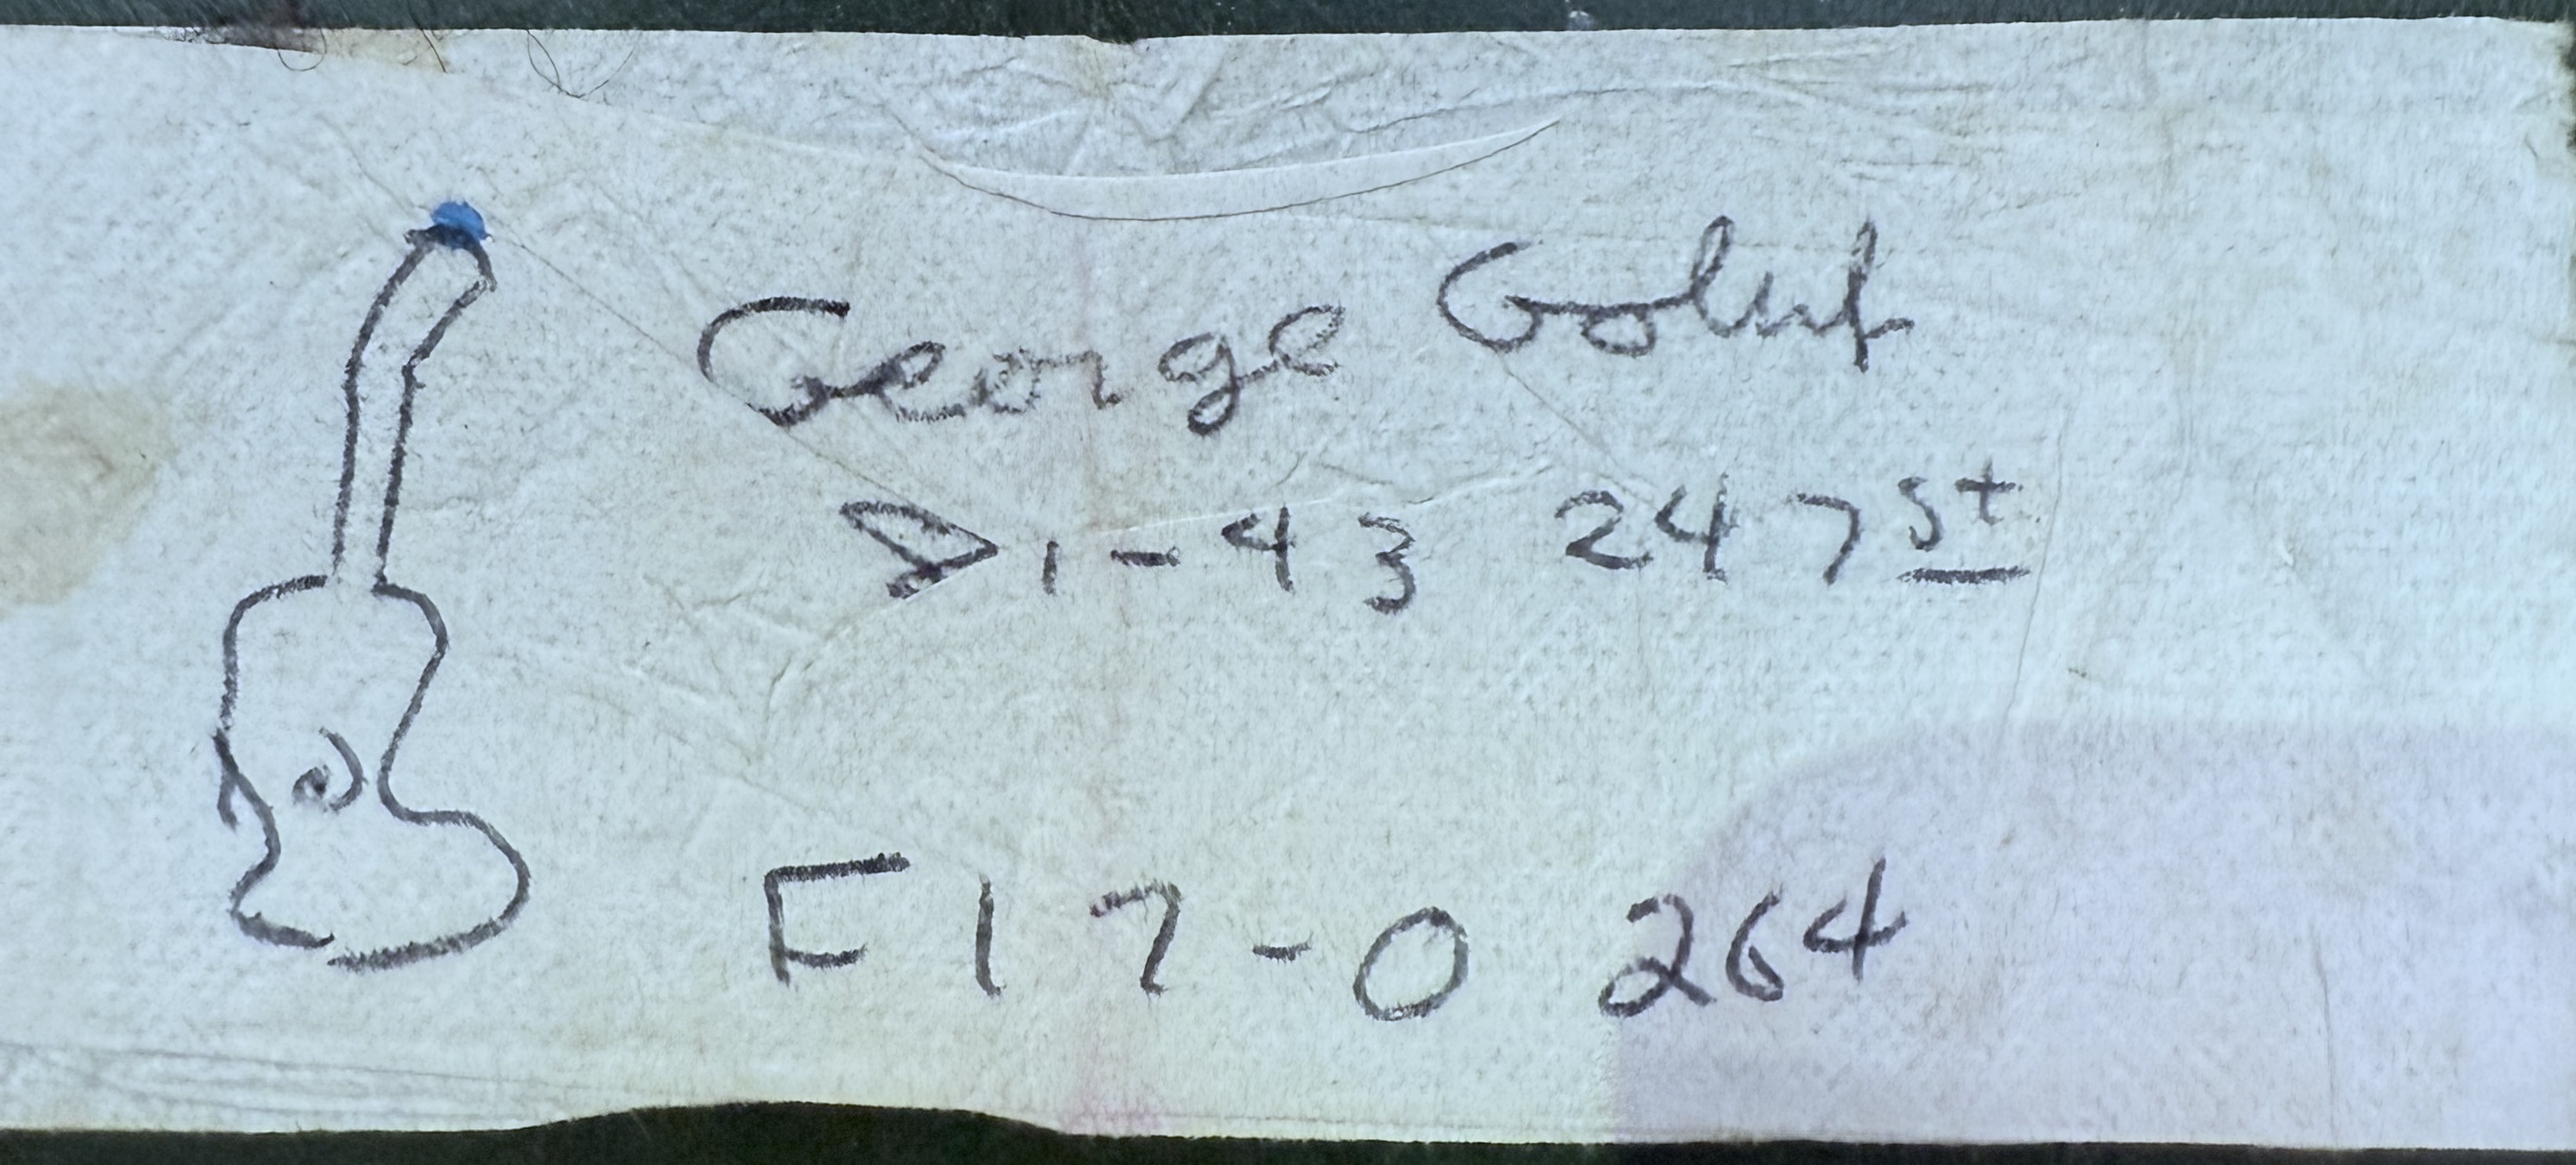 George Goluf
81-43 247 st
F17-0264